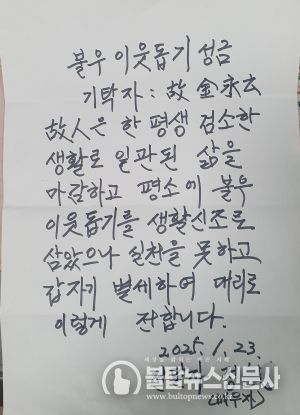 불우 이웃돕기 성금
기탁자: 故 金永玄
故人은 한 평생 검소한
생활로 일관된 삶을
마감하고 평소에 불우
이웃돕기를 생활신조로
삼았으나 실천을 못하고
갑자기 별세하여 대리로
이렇게 전합니다.
2025. 1. 23.
불탑뉴스신문사
www.bultopnews.com